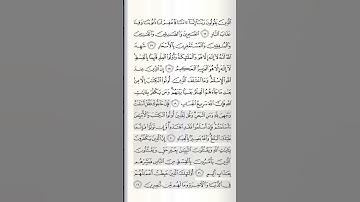 ٱلَّذِينَ يَقُولُونَ رَبَّنَآ إِنَّنَآ ءَامَنَّا فَٱغْفِرْ لَنَا ذُنُوبَنَا وَقِنَا
عَذَابَ ٱلنَّارِ ١٦ ٱلصَّٰبِرِينَ وَٱلصَّٰدِقِينَ وَٱلْقَٰنِتِينَ
وَٱلْمُنفِقِينَ وَٱلْمُسْتَغْفِرِينَ بِٱلْأَسْحَارِ ١٧ شَهِدَ
ٱللَّهُ أَنَّهُۥ لَآ إِلَٰهَ إِلَّا هُوَ وَٱلْمَلَٰٓئِكَةُ وَأُو۟لُوا۟ ٱلْعِلْمِ قَآئِمًۢا بِٱلْقِسْطِ
لَآ إِلَٰهَ إِلَّا هُوَ ٱلْعَزِيزُ ٱلْحَكِيمُ ١٨ إِنَّ ٱلدِّينَ عِندَ
ٱللَّهِ ٱلْإِسْلَٰمُ وَمَا ٱخْتَلَفَ ٱلَّذِينَ أُوتُوا۟ ٱلْكِتَٰبَ إِلَّا مِنۢ
بَعْدِ مَا جَآءَهُمُ ٱلْعِلْمُ بَغْيًۢا بَيْنَهُمْ وَمَن يَكْفُرْ بِـَٔايَٰتِ
ٱللَّهِ فَإِنَّ ٱللَّهَ سَرِيعُ ٱلْحِسَابِ ١٩ فَإِنْ حَآجُّوكَ فَقُلْ أَسْلَمْتُ
وَجْهِىَ لِلَّهِ وَمَنِ ٱتَّبَعَنِ وَقُل لِّلَّذِينَ أُوتُوا۟ ٱلْكِتَٰبَ وَٱلْأُمِّيِّـۧنَ
ءَأَسْلَمْتُمْ فَإِنْ أَسْلَمُوا۟ فَقَدِ ٱهْتَدَوا۟ وَّإِن تَوَلَّوْا۟ فَإِنَّمَا
عَلَيْكَ ٱلْبَلَٰغُ وَٱللَّهُ بَصِيرٌۢ بِٱلْعِبَادِ ٢٠ إِنَّ ٱلَّذِينَ يَكْفُرُونَ
بِـَٔايَٰتِ ٱللَّهِ وَيَقْتُلُونَ ٱلنَّبِيِّـۧنَ بِغَيْرِ حَقٍّ وَيَقْتُلُونَ
ٱلَّذِينَ يَأْمُرُونَ بِٱلْقِسْطِ مِنَ ٱلنَّاسِ فَبَشِّرْهُم
بِعَذَابٍ أَلِيمٍ ٢١ أُو۟لَٰٓئِكَ ٱلَّذِينَ حَبِطَتْ أَعْمَٰلُهُمْ
فِى ٱلدُّنْيَا وَٱلْـَٔاخِرَةِ وَمَا لَهُم مِّن نَّٰصِرِينَ ٢٢